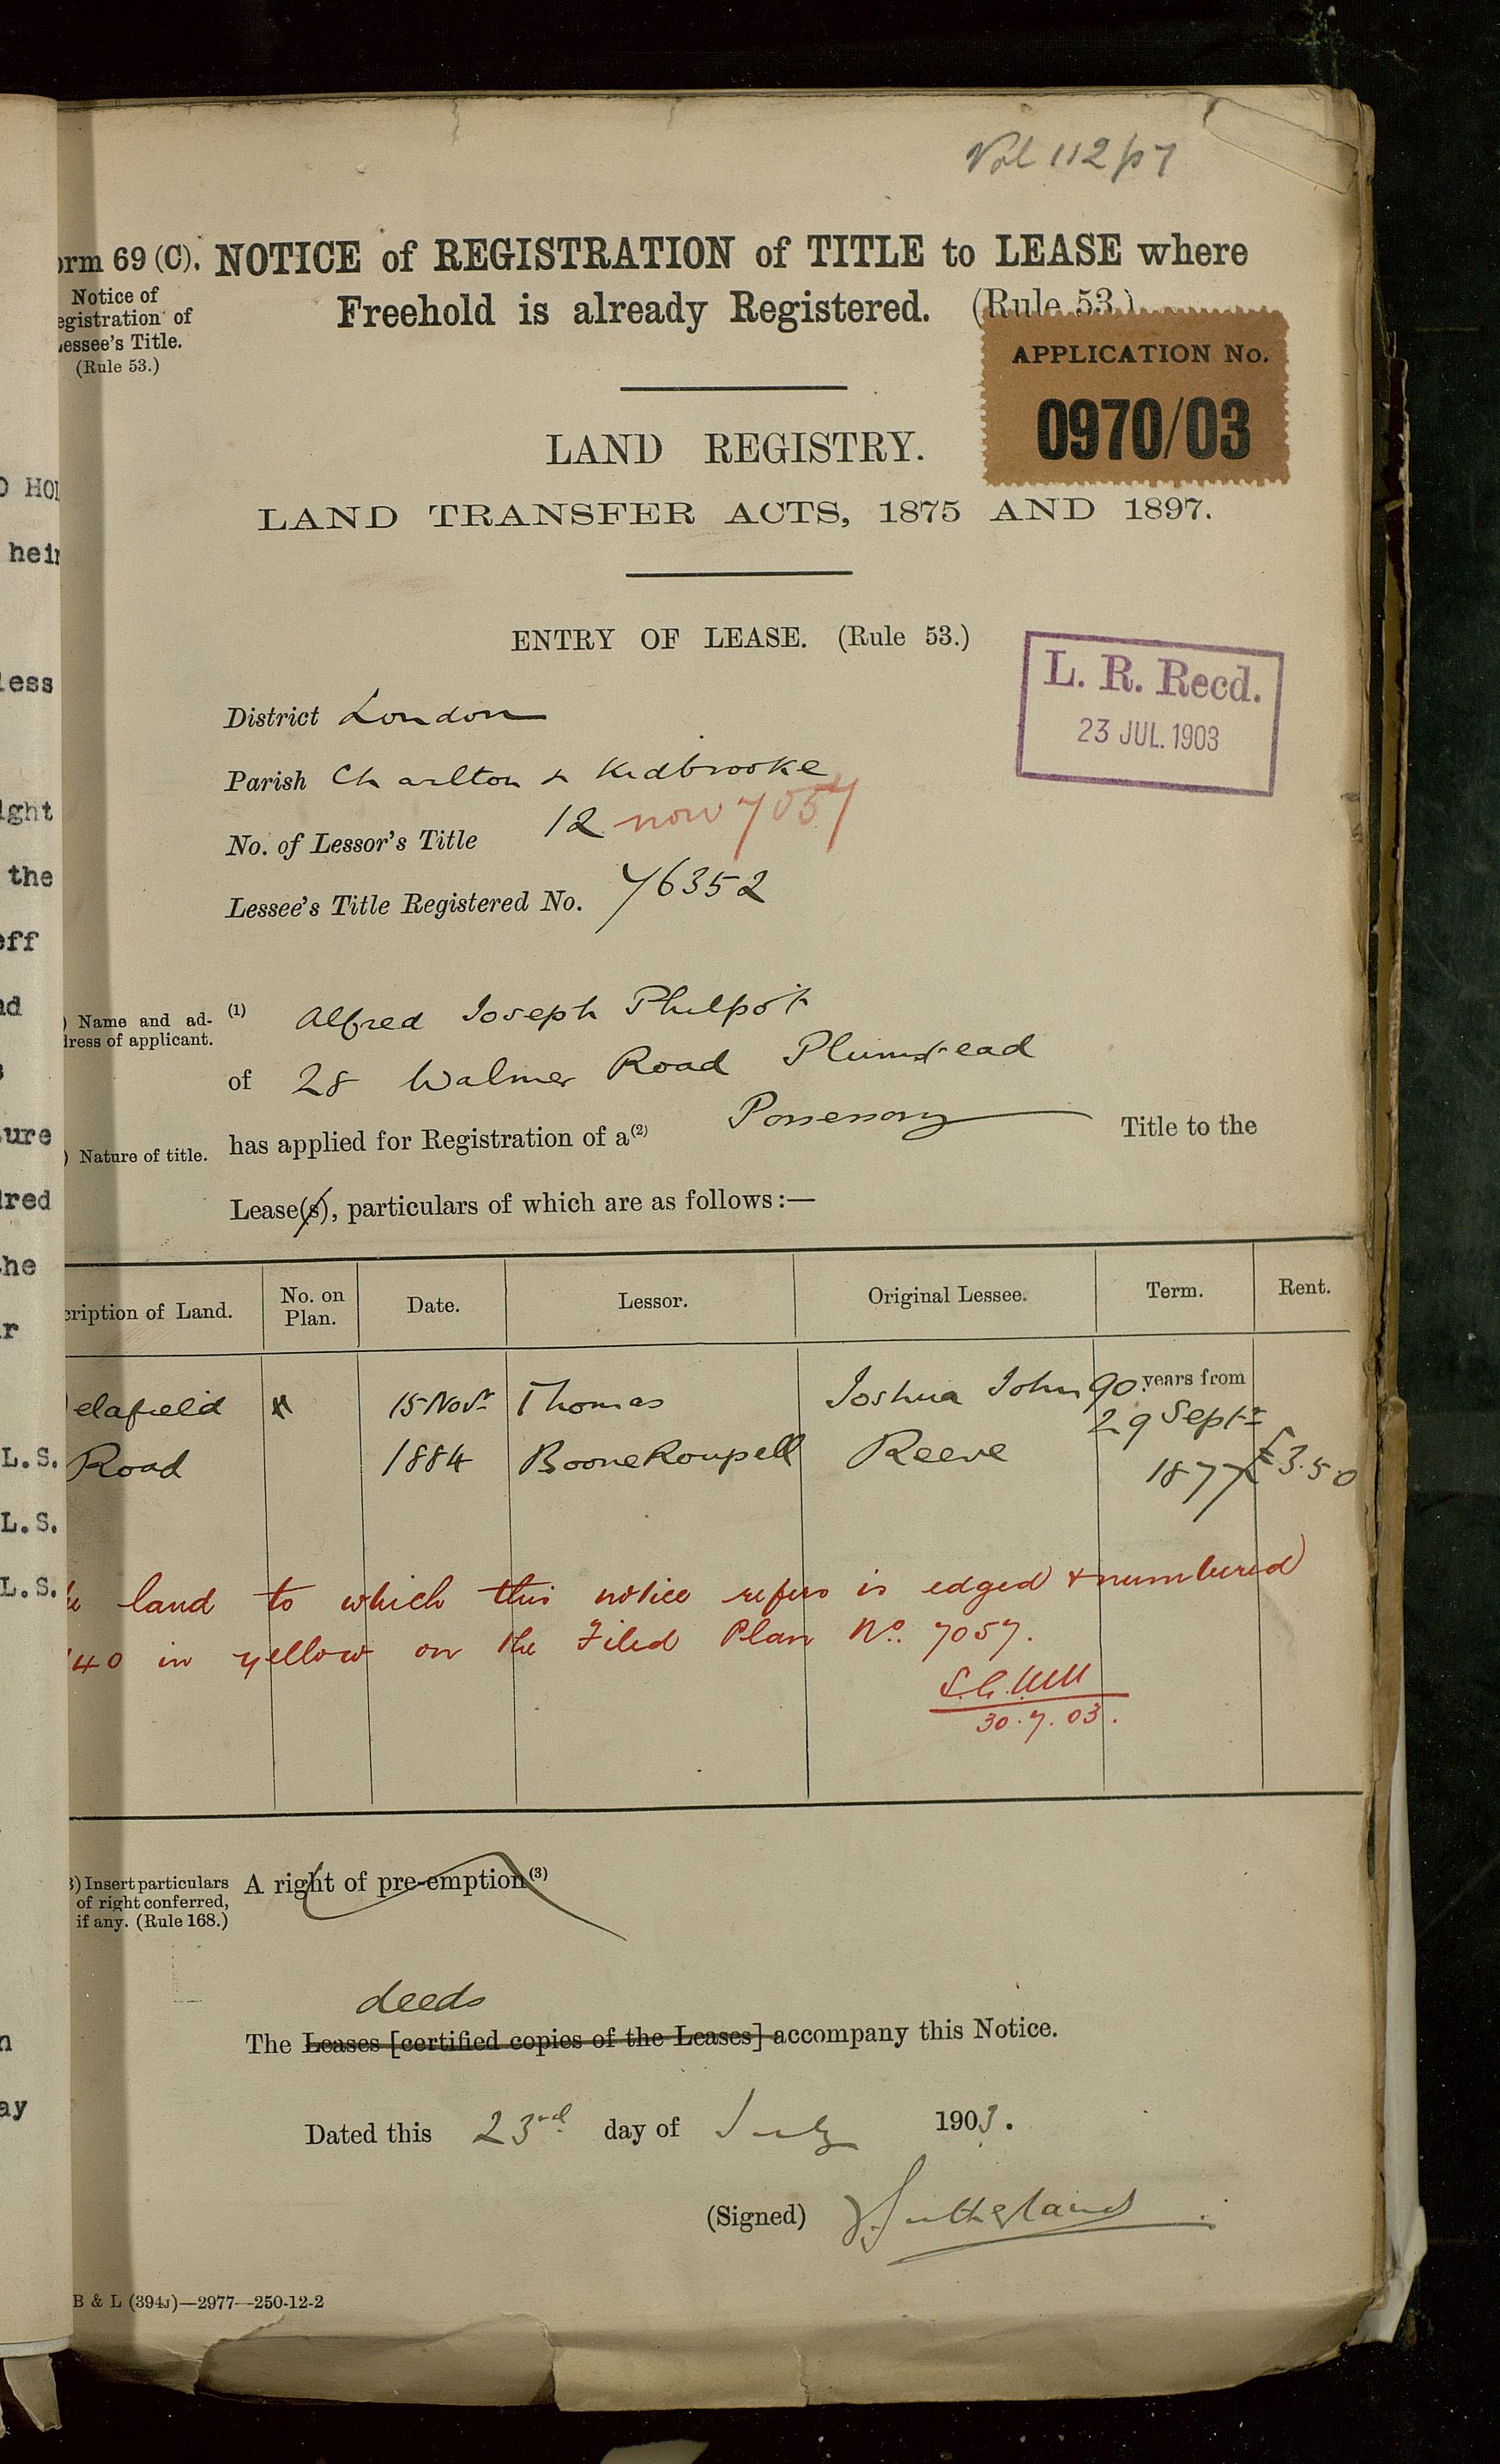 Vol 112/p7
orm 69 (C). NOTICE of REGISTRATION of TITLE to LEASE where
Freehold is already Registered. (Rule 53.)
Notice of
egistration of
essee's Title.
(Rule 53.)
APPLICATION No.
0970/03
LAND REGISTRY.
LAND TRANSFER ACTS, 1875 AND 1897.
ENTRY OF LEASE. (Rule 53.)
L. R. Recd.
23 JUL. 1903
District London
Parish Charlton & Kidbrooke
No. of Lessor's Title 12 now 7057
Lessee's Title Registered No. 76352
) Name and ad-
dress of applicant.
(1) Alfred Joseph Philpot
of 28 Walmer Road Plumstead
) Nature of title.
has applied for Registration of a(2) Possessory Title to the
Lease(s), particulars of which are as follows:—
cription of Land. No. on Plan. Date. Lessor. Original Lessee. Term. Rent.
elafield 15 Novr Thomas Joshua John 90 years from
Road 1884 Boone Roupell Reeve 29 Sept
1877 £3.5.0
land to which this notice refers is edged & numbered
40 in yellow on the Filed Plan No. 7057.
30.7.03.
3) Insert particulars
of right conferred,
if any. (Rule 168.)
A right of pre-emption(3)
deeds
The Leases [certified copies of the Leases] accompany this Notice.
Dated this 23rd day of July 1903.
(Signed) Sutherland
B & L (394J)—2977—250-12-2
O HO
hei
less
ight
the
eff
nd
ure
dred
the
r
L.S.
L.S.
L.S.
n
ay